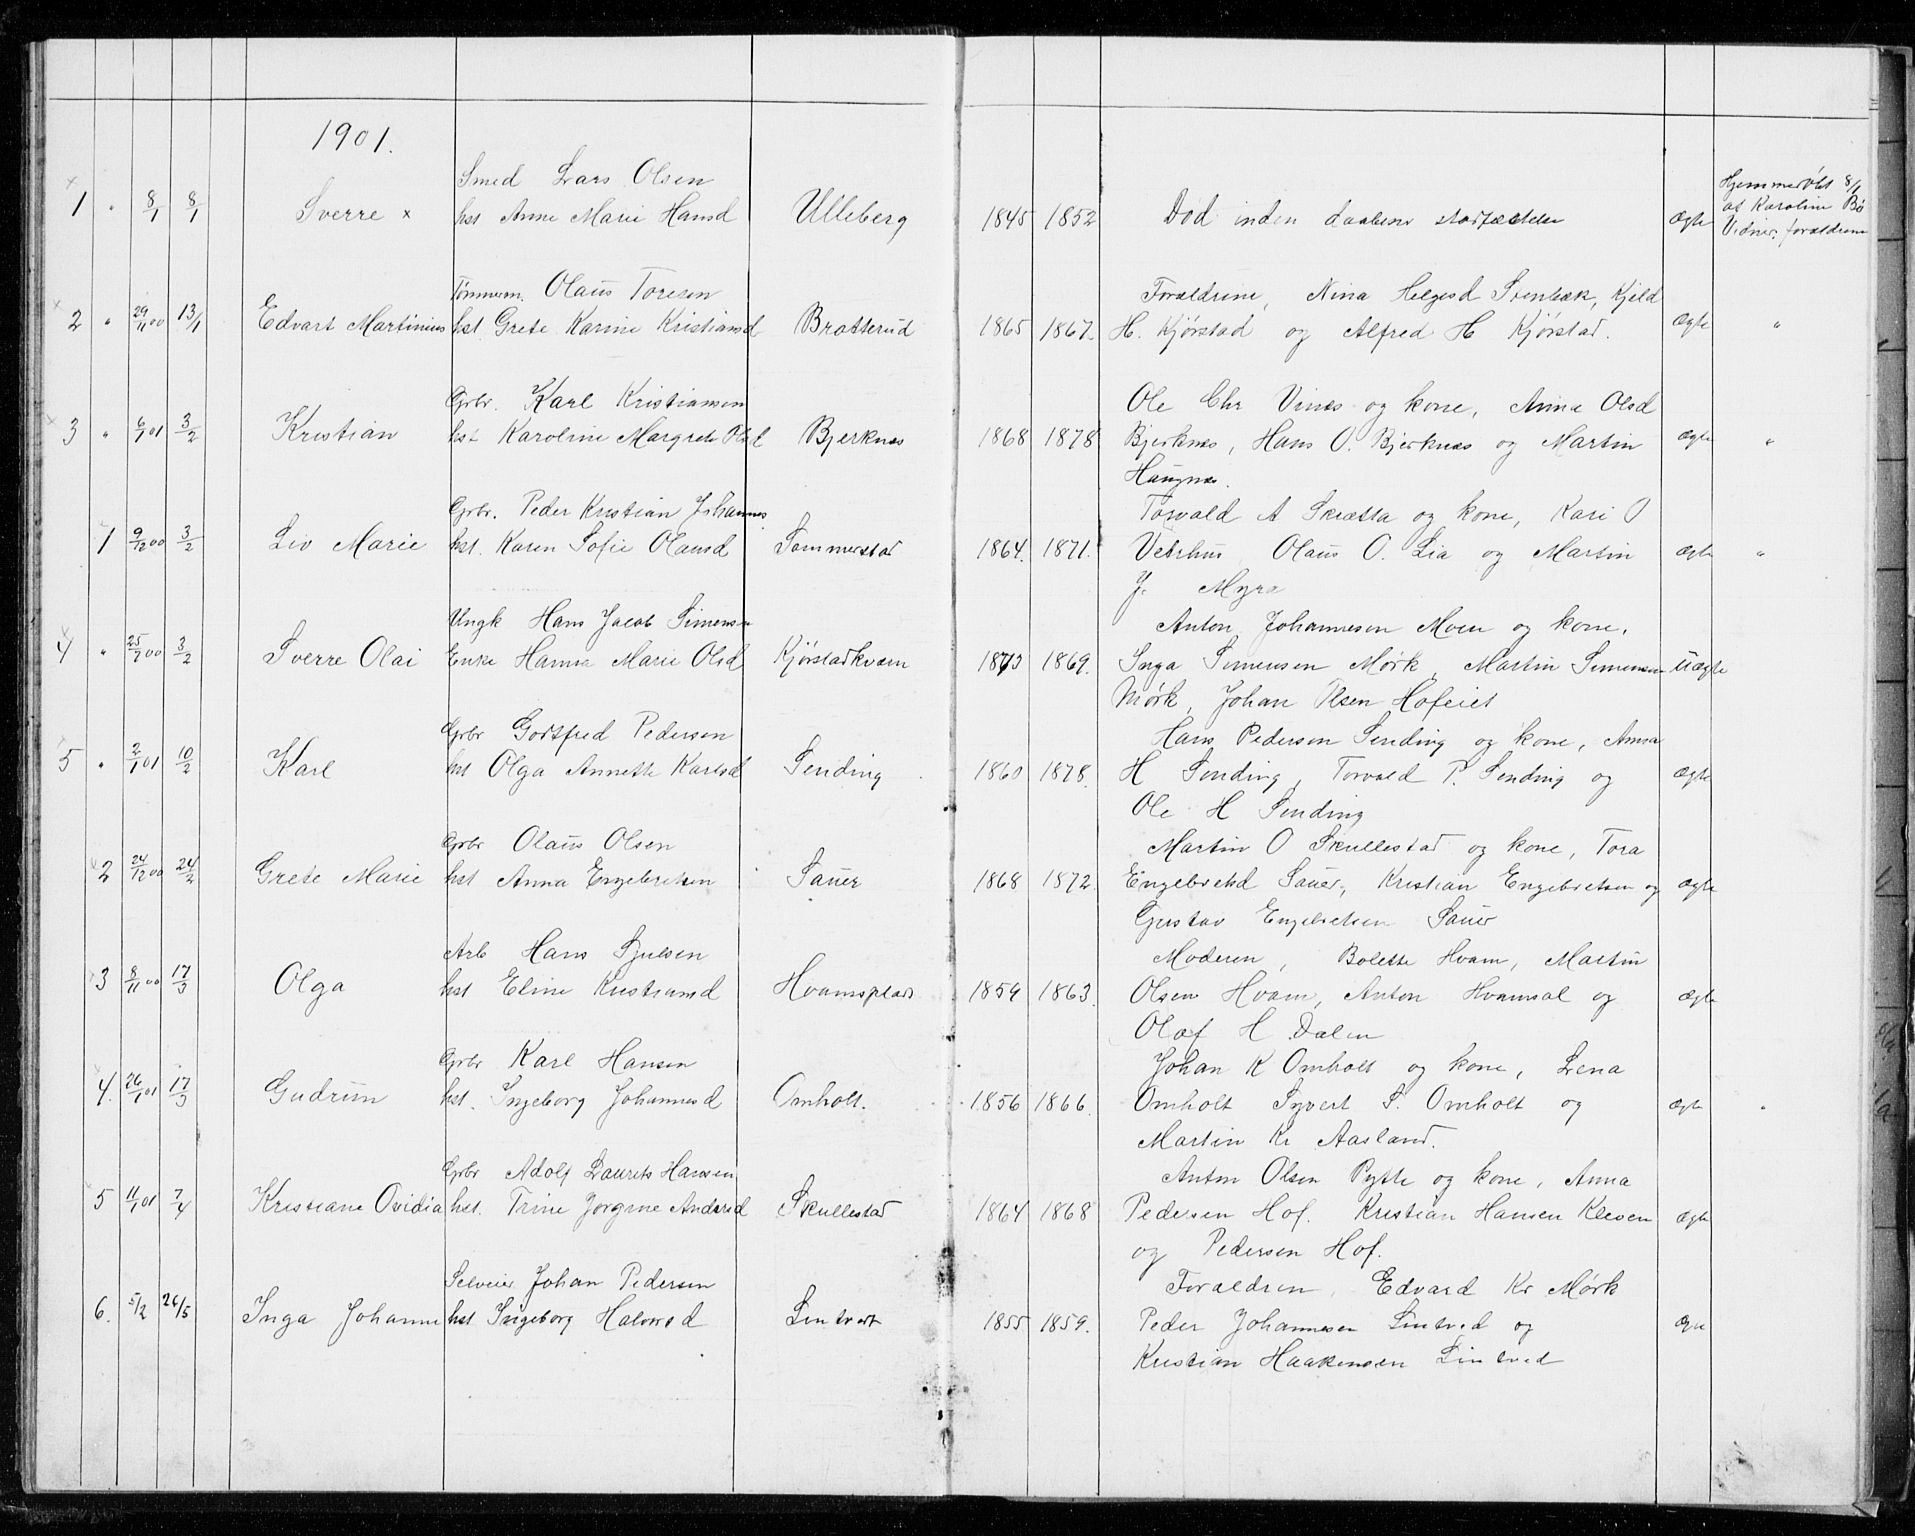 1901.
Smed Lars Olsen
1 " 8/1 8/1 Sverre x hst Anne Marie Hansd Ulleberg 1845 1852 Død inden daabens stadfæstelse ægte Hjemmedøbt 8/1 af Karoline Bø Vidner: forældrene
Tømmerm. Olaus Toresen Forældrene, Nina Helgesd Stenbæk, Kjeld
2 " 29/11 00 13/1 Edvart Martinius hst. Grete Karine Kristiansd Bratterud 1865 1867. H. Kjørstad og Alfred H Kjørstad. ægte "
Grbr. Karl Kristiansen Ole Chr Vinæs og kone, Anna Olsd
3 " 6/1 01 3/2 Kristian hst Karoline Margrete Olsd Bjerknæs 1868 1878 Bjerknæs, Hans O. Bjerknæs og Martin ægte "
Haugnæs.
Grbr. Peder Kristian Johannes. Torvald A Skrætta og kone, Kari O
1 9/12 00 3/2 Liv Marie hst. Karen Sofie Olausd Sommerstad 1864. 1871. Vetrhus Olaus O. Lia og Martin ægte "
J. Myra
Ungk Hans Jacob Simensen Anton Johannesen Moen og kone,
4 " 25/7 00 3/2 Sverre Olai Enke Hanna Marie Olsd Kjørstadkvern 1873 1869. Inga Simensen Mørk, Martin Simensen uægte
Mørk, Johan Olsen Hofeiet
Grbr Gotfred Pedersen Hans Pedersen Sending og kone, Anna
5 " 2/1 01 10/2 Karl hst Olga Annette Karlsd Sending 1860 1878. H Sending, Torvald P. Sending og ægte
Ole H Sending
Grbr Olaus Olsen Martin O Skullestad og kone, Tora
2 24/12 00 24/2 Grete Marie hst Anna Engebretsen Sauer 1868 1872. Engebretsd Sauer, Kristian Engebretsen og ægte
Gustav Engebretsen Sauer
Arb Hans Sjulsen Moderen, Bolette Hvam, Martin
3 8/11 00 17/3 Olga hst Eline Kristiansd Hvamsplads 1859 1863. Olsen Hvam, Anton Hvamsal og ægte
Olaf H Dalen
Grbr Karl Hansen Johan K Omholt og kone, Lena
4. 26/1 01 17/3 Gudrun hst. Ingeborg Johannesd Omholt. 1856 1866. Omholt Syvert S. Omholt og ægte "
Martin Kr Aasland.
Grbr Adolf Laurits Hansen Anton Olsen Pytte og kone, Anna
5 11/1 01 7/4 Kristiane Ovidia hst. Trine Jørgine Andersd Skullestad 1864 1868 Pedersen Hof. Kristian Hansen Kleven ægte
og Pedersen Hof.
Selveier Johan Pedersen Forældren, Edvard Kr Mørk
6. 5/2 26/5 Inga Johanne hst Ingeborg Halvorsd Lintvert 1855 1859. Peder Johannesen Lintved og ægte
Kristian Haakensen Lintved